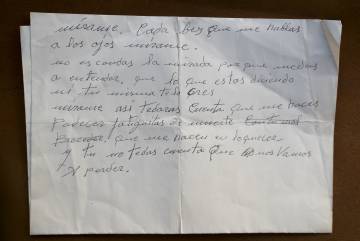 mirame. Cada bes que me hablas
a los ojos mirame.
no escondas la mirada porque me das
a entender, que lo que estas diciendo
ni tu misma te lo crees
mirame asi te daras cuenta que me haces
Padecer fatiguitas de muerte
que me hacen enloquecer
y tu no te das cuenta que nos vamos
A perder.